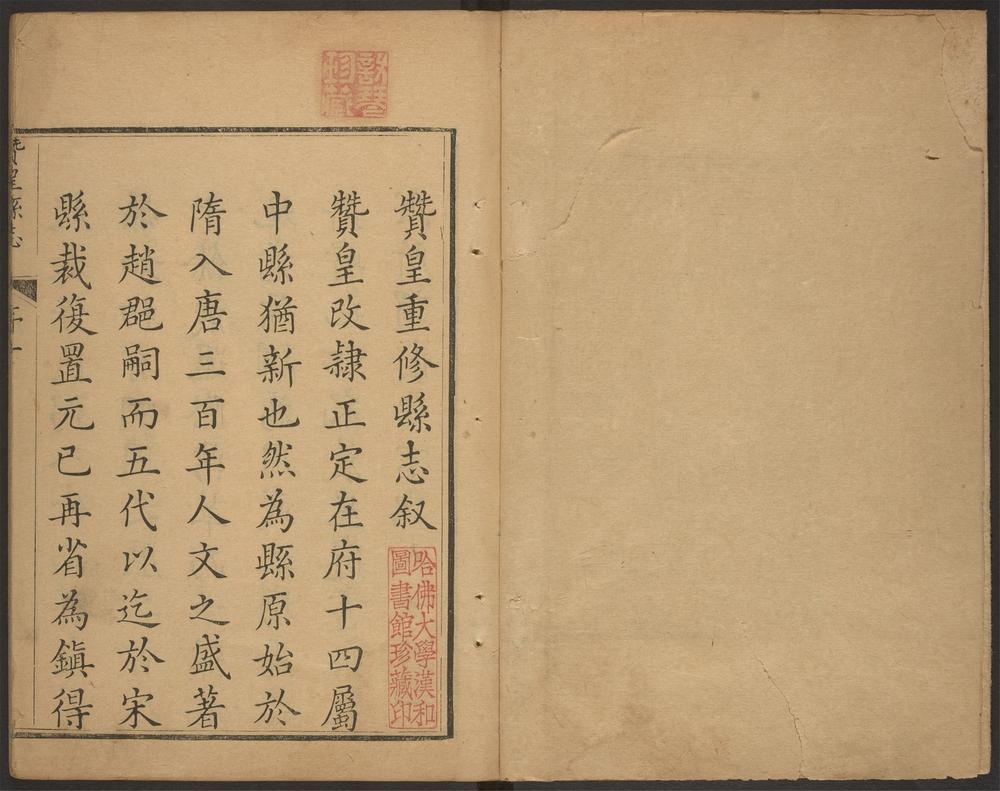 贊皇重修縣志叙
贊皇改隷正定在府十四屬
中縣猶新也然為縣原始於
隋入唐三百年人文之盛著
於趙郡嗣而五代以迄於宋
縣裁復置元已再省為鎮得
哈佛大學漢和
圖書館珍藏印
贊皇縣志
珍藏